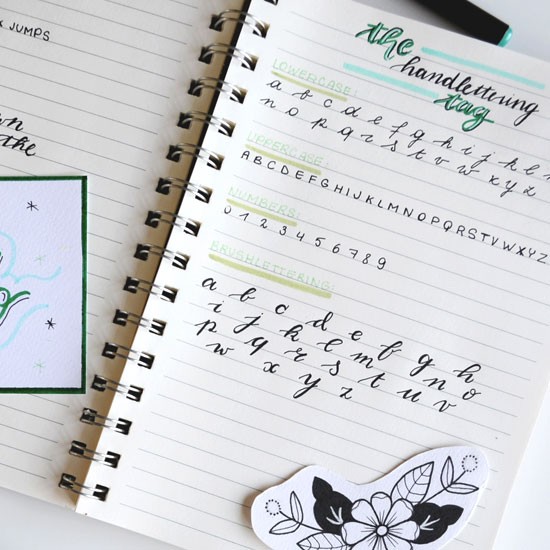 X JUMPS
the
the
handlettering
tag
LOWERCASE:
a b c d e f g h i j k l m
n o p q r s t v w x y z
UPPERCASE:
A B C D E F G H I J K L M N O P Q R S T V W X Y Z
NUMBERS:
0 1 2 3 4 5 6 7 8 9
BRUSHLETTERING:
a b c d e f g h
i j k l m n o
p q r s t u v
w x y z